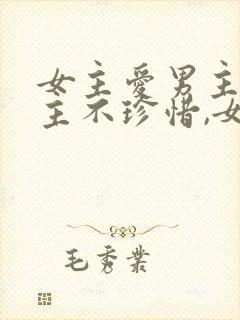 女主爱男主
主不珍惜,女
毛秀業